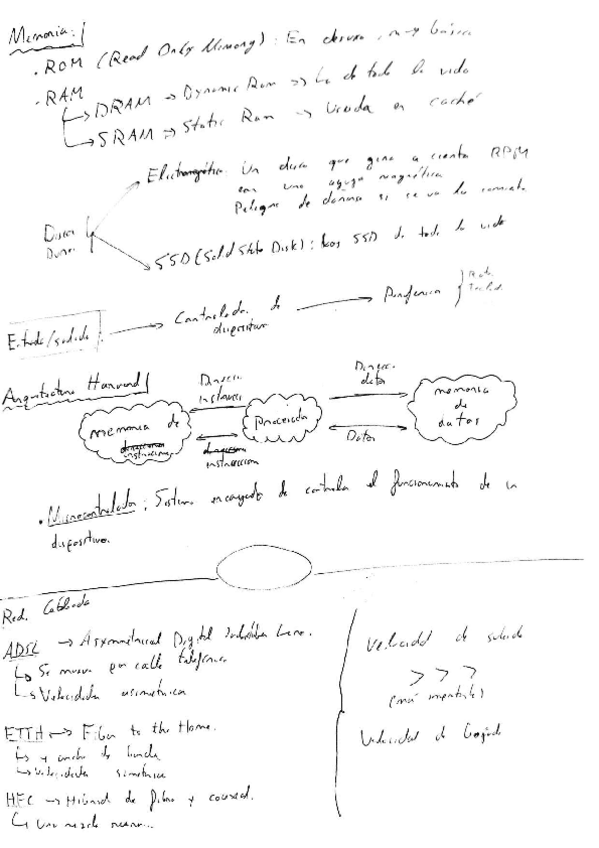 Memoria:
· ROM (Read Only Memory): En desuso, muy básica
· RAM
↳ DRAM → Dynamic Ram → La de toda la vida
↳ SRAM → Static Ram → Usada en caché
Discos
Duros
Electromagnético: Un disco que gira a ciertas RPM
con una aguja magnética
Peligro de dañarse si se va la corriente
SSD (Solid State Disk): Los SSD de toda la vida
Entrada/salida → Controlador de → Periférico
dispositivo
Arquitectura Harvard
memoria de
instrucciones
procesador
Datos
memoria
de
datos
instrucción
· Microcontrolador: Sistema encargado de controlar el funcionamiento de un
dispositivo.
Red. Cableada
ADSL → Asymmetrical Digital Line.
↳ Se mueve por cable telefónico
↳ Velocidades asimétrica
FTTH → Fiber to the Home.
↳ ancho de banda
↳ Velocidades simétrica
HFC → Híbrido de fibra y coaxial.
↳ Una mezcla
Velocidad de subida
> > >
Velocidad de bajada